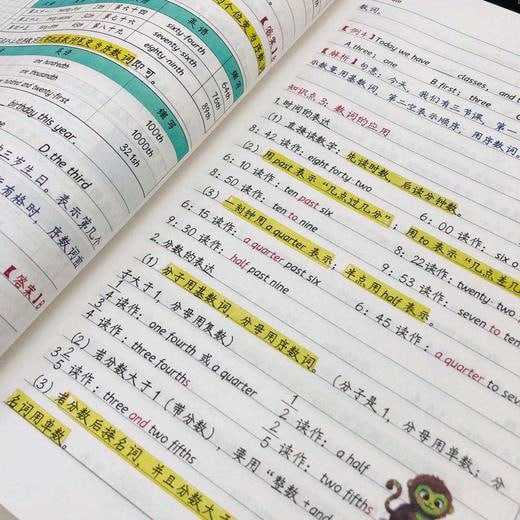 第六十四
第七十六
第八十九
英语
sixty fourth
seventy sixth
eighty ninth
缩写
64th
76th
89th
英语
one hundredth
one thousandth
缩写
100th
1000th
321st
birthday this year.
D. the third
三岁生日。表示第几个
有格时，序数词前
【答案】B
数词。
【例1】Today we have classes, and
A. three; one B. first; three
【解析】句意：今天，我们有三节课，第一
小数量用基数词，第二空表示顺序，用序数词
知识点5、数词的应用
1.时间的表达
(1) 直接读数字：先读时数，后读分钟数。
8:42 读作：eight forty two 6:00 读作：six o
(2) 用past表示“几点过几分”；用to表示“几点差几
6:10 读作：ten past six 8:22 读作：twenty two
8:50 读作：ten to nine 9:53 读作：seven to ten
(3) 一刻钟用a quarter表示；半点用half表示。
6:15 读作：a quarter past six 6:45 读作：a quarter to sev
9:30 读作：half past nine
2.分数的表达
(1) 分子用基数词，分母用序数词。（分子是1，分母用单数；分
子大于1，分母用复数）
1/4 读作：one fourth 或 a quarter 1/2 读作：a half
3/4 读作：three fourths 2/5 读作：two fifths
(2) 若分数大于1（带分数），要用“整数+and
3 2/5 读作：three and two fifths
(3) 若分数后接名词，并且分数大于
名词用单数。